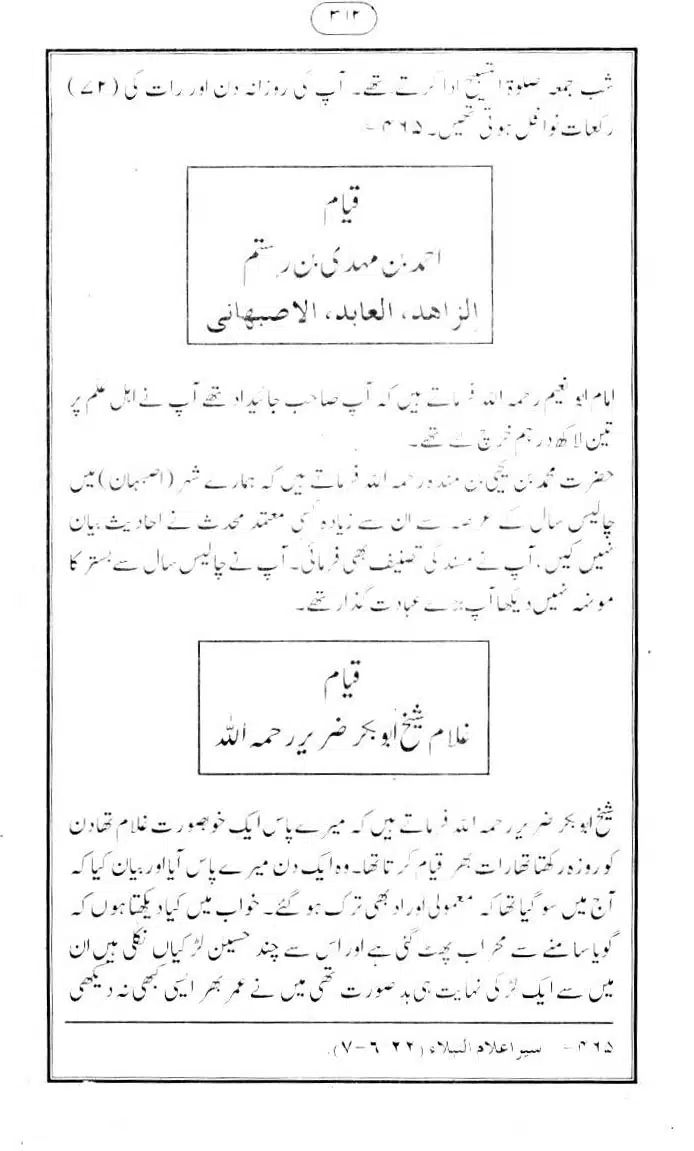 ۳۱۲
شب جمعہ صلوٰۃ التسبیح ادا کرتے تھے۔ آپ کی روزانہ دن اور رات کی (۷۲)
رکعات نوافل ہوتی تھیں۔ ۴۶۵؎
قیام
احمد بن مہدی بن رستم
الزاھد، العابد، الاصبھانی
امام ابو نعیم رحمہ اللہ فرماتے ہیں کہ آپ صاحب جائیداد تھے آپ نے اھل علم پر
تین لاکھ درھم خرچ کئے تھے۔
حضرت محمد بن یحیی بن مندہ رحمہ اللہ فرماتے ہیں کہ ہمارے شہر (اصبہان) میں
چالیس سال کے عرصہ سے ان سے زیادہ کسی معتمد محدث نے احادیث بیان
نہیں کیں، آپ نے مسند کی تصنیف بھی فرمائی۔ آپ نے چالیس سال سے بستر کا
مونہہ نہیں دیکھا آپ بڑے عبادت گذار تھے۔
قیام
غلام شیخ ابو بکر ضریر رحمہ اللہ
شیخ ابو بکر ضریر رحمہ اللہ فرماتے ہیں کہ میرے پاس ایک خوبصورت غلام تھا دن
کو روزہ رکھتا تھا رات بھر قیام کرتا تھا۔ وہ ایک دن میرے پاس آیا اور بیان کیا کہ
آج میں سو گیا تھا کہ معمولی اوراد بھی ترک ہو گئے۔ خواب میں کیا دیکھتا ہوں کہ
گویا سامنے سے محراب پھٹ گئی ہے اور اس سے چند حسین لڑکیاں نکلی ہیں ان
میں سے ایک لڑکی نہایت ہی بد صورت تھی میں نے عمر بھر ایسی کبھی نہ دیکھی
۴۶۵؎ سیر اعلام النبلاء (۲۲ ۶-۷)۔